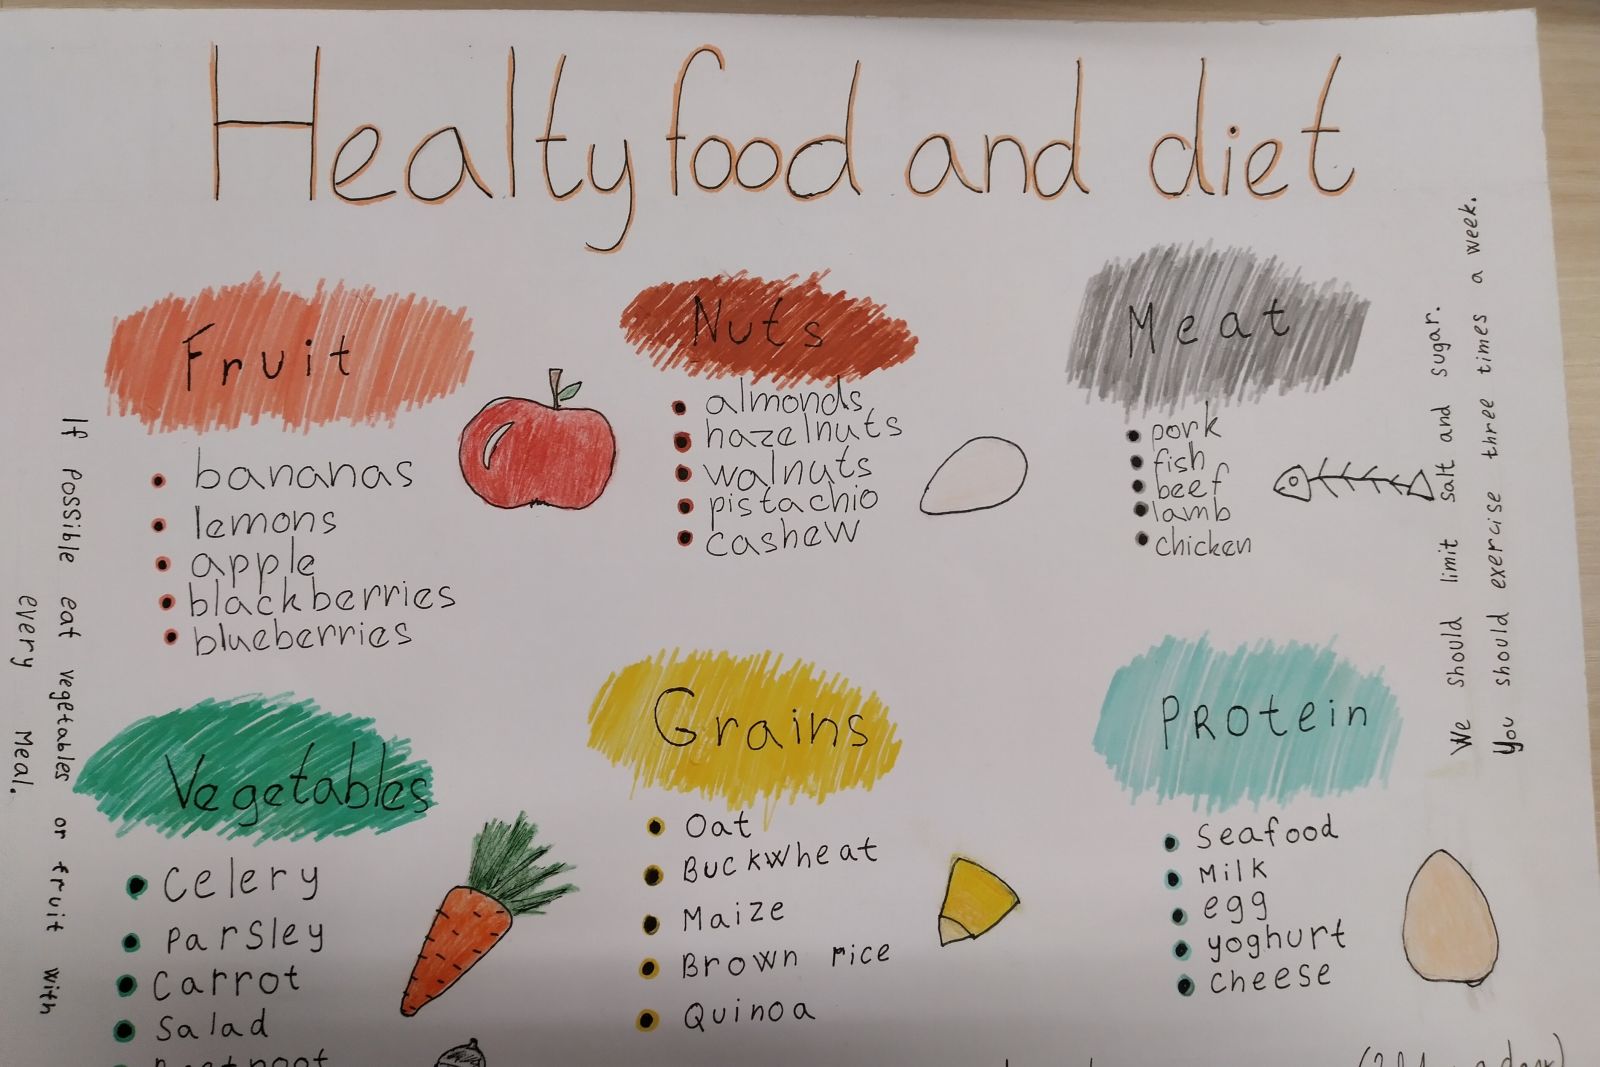 Healty food and diet
Fruit
bananas
lemons
apple
blackberries
blueberries
Nuts
almonds
hazelnuts
walnuts
pistachio
cashew
Meat
pork
fish
beef
lamb
chicken
Vegetables
Celery
Parsley
Carrot
Salad
Grains
Oat
Buckwheat
Maize
Brown rice
Quinoa
Protein
Seafood
Milk
egg
yoghurt
cheese
If Possible eat vegetables or fruit with
every Meal.
We should limit salt and sugar.
You should exercise three times a week.